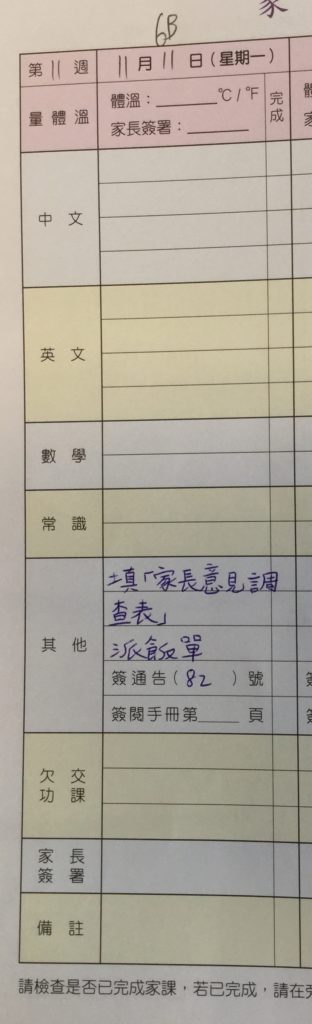 家
6B
第 11 週 11 月 11 日（星期一）
量體溫 體溫：______℃/℉ 完成
家長簽署：______
中文
英文
數學
常識
其他 填「家長意見調
查表」
派飯單
簽通告（82 ）號
簽閱手冊第____頁
欠交
功課
家長
簽署
備註
請檢查是否已完成家課，若已完成，請在